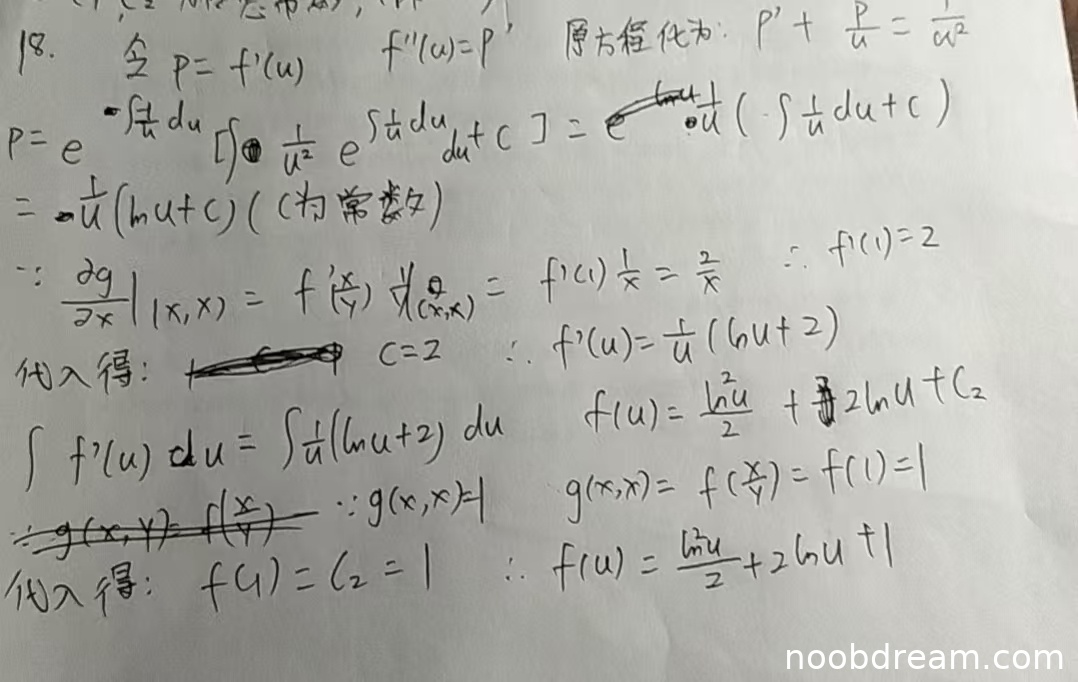 18. 令 p = f'(u) f''(u) = p' 原方程化为: p' + p/u = 1/u²
p = e^(-∫1/u du) [∫ 1/u² e^(∫1/u du) du + C] = 1/u (∫ 1/u du + C)
= 1/u (ln u + C) (C为常数)
∵ ∂g/∂x |(x,x) = f'(x/y) 1/y |(x,x) = f'(1) 1/x = 2/x ∴ f'(1) = 2
代入得: C = 2 ∴ f'(u) = 1/u (ln u + 2)
∫ f'(u) du = ∫ 1/u (ln u + 2) du f(u) = ln²u/2 + 2 ln u + C₂
∵ g(x,y) = f(x/y) ∵ g(x,x) = 1 g(x,x) = f(x/y) = f(1) = 1
代入得: f(1) = C₂ = 1 ∴ f(u) = ln²u/2 + 2 ln u + 1
noobdream.com